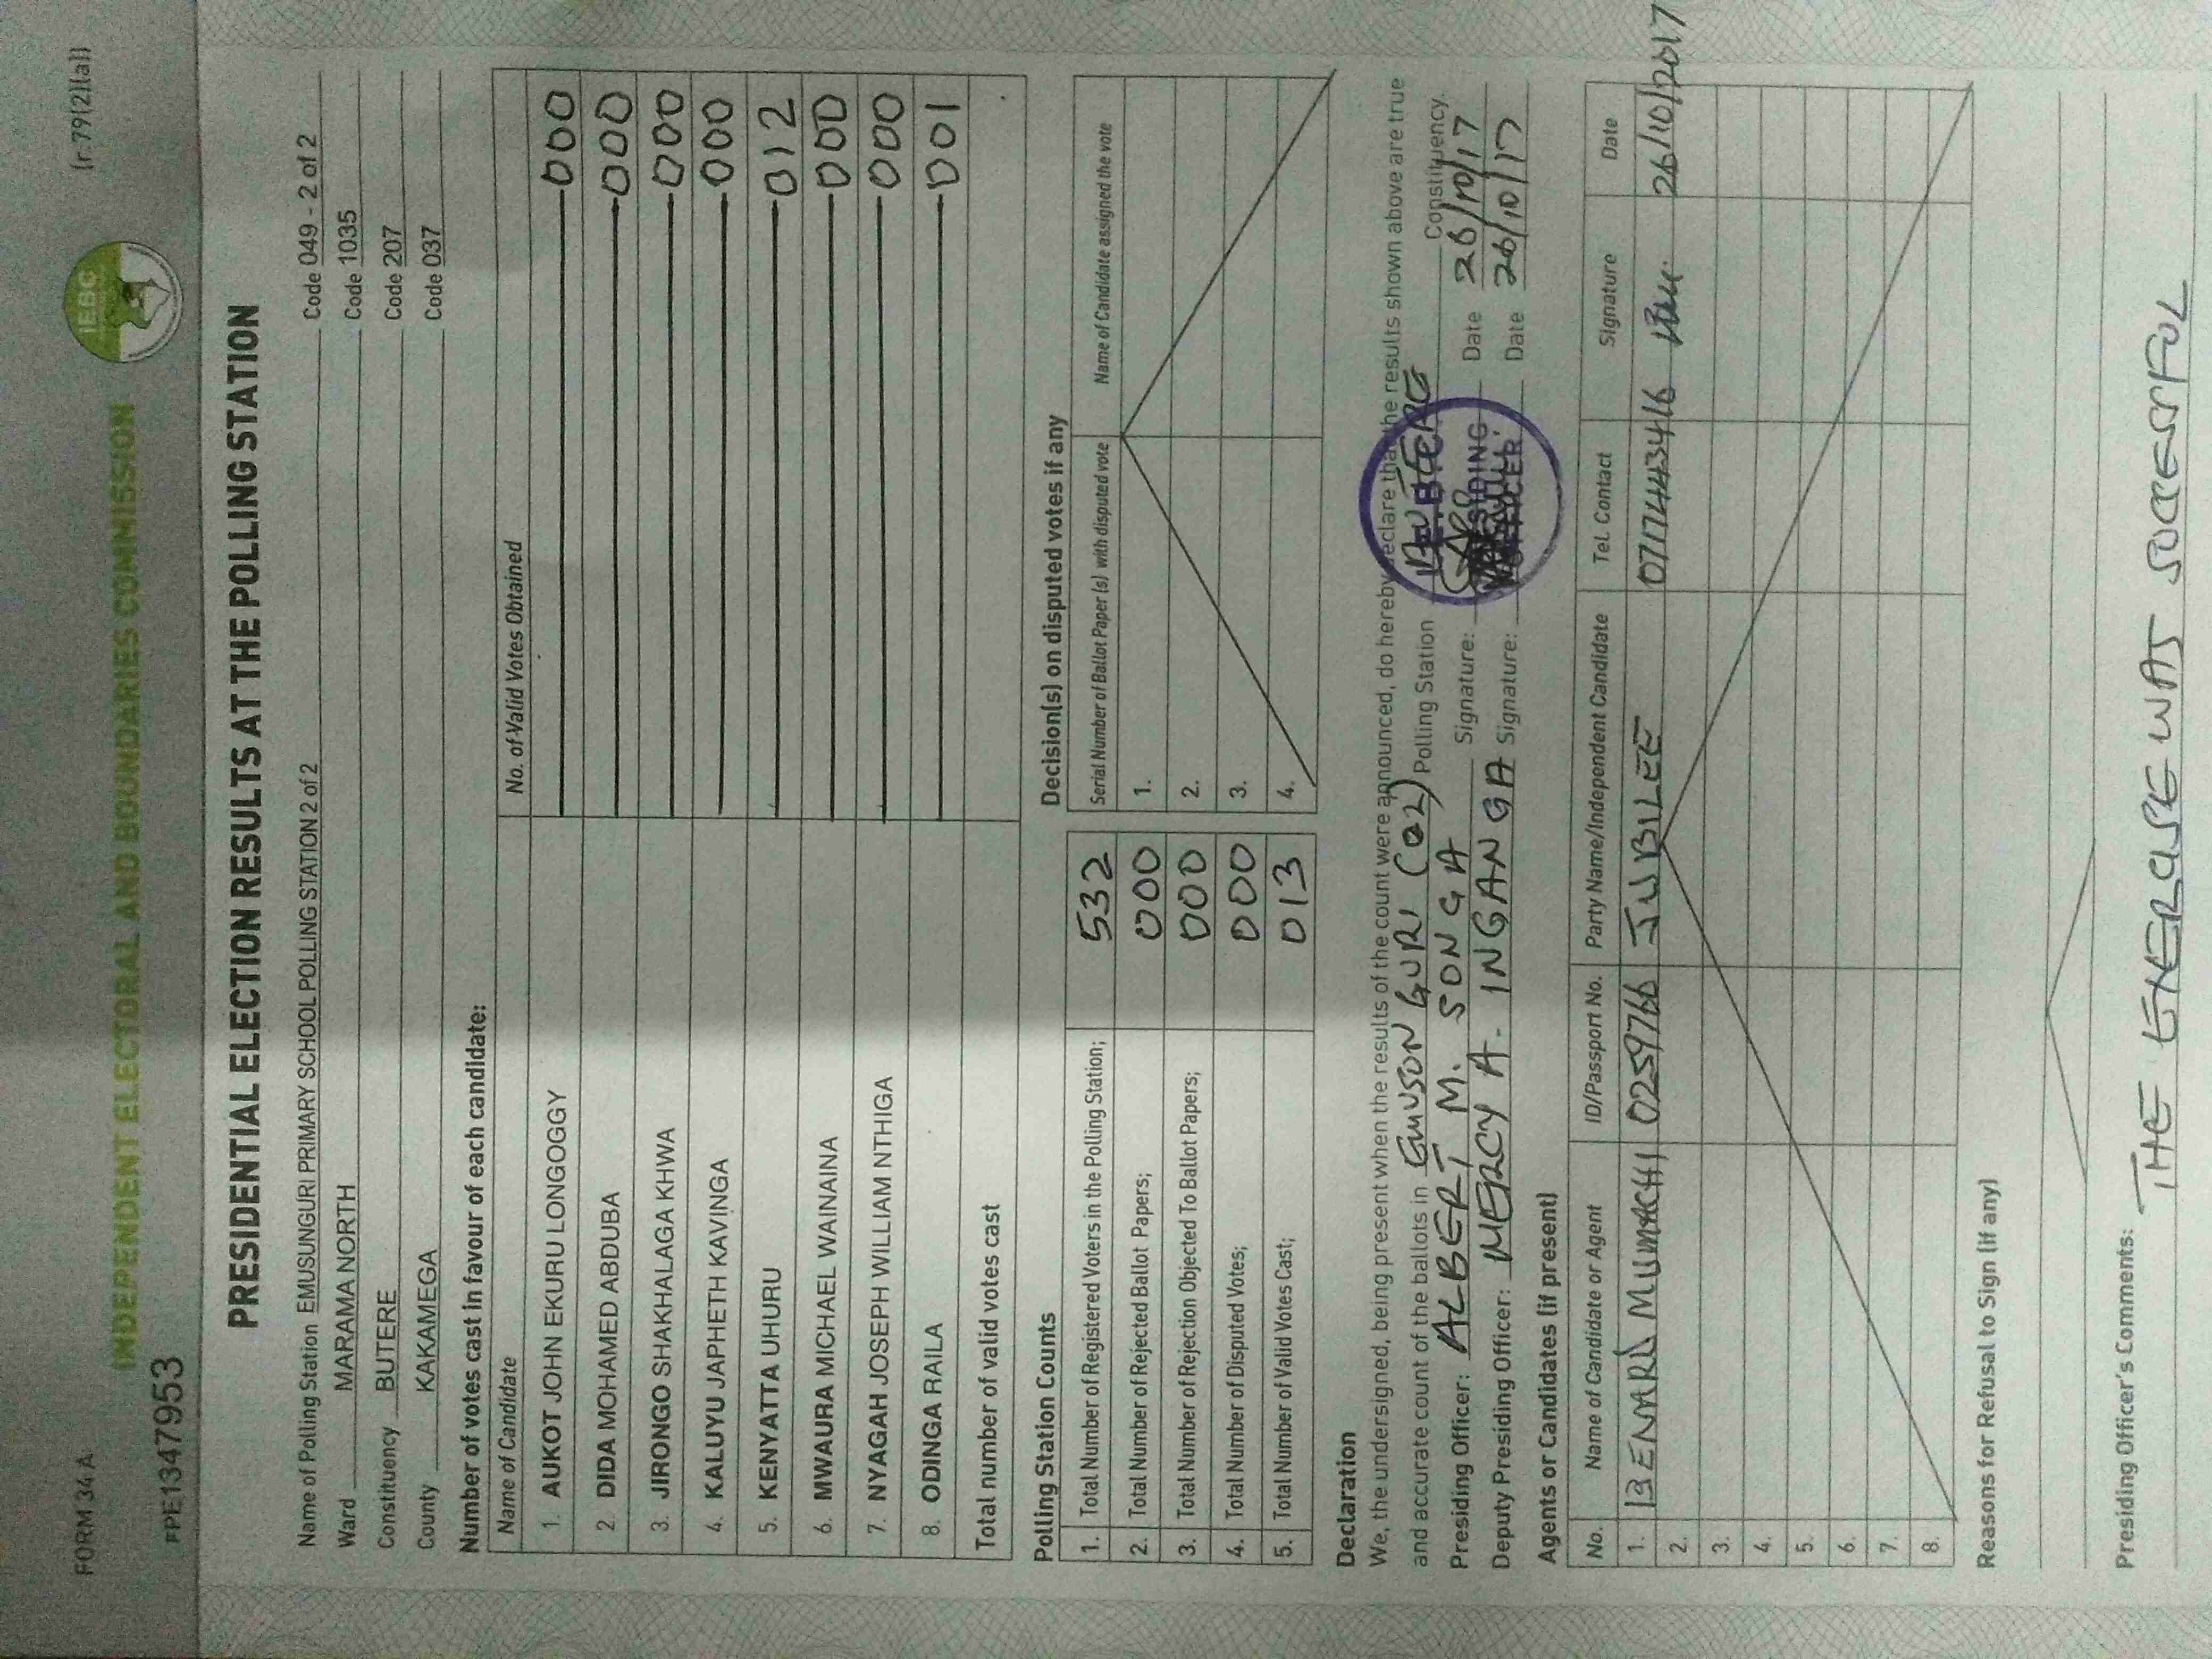 FORM 34 A
(r.79(2)(a))
FPE1347953
INDEPENDENT ELECTORAL AND BOUNDARIES COMMISSION
IEBC
PRESIDENTIAL ELECTION RESULTS AT THE POLLING STATION
Name of Polling Station EMUSUNGURI PRIMARY SCHOOL POLLING STATION 2 of 2 Code 049 - 2 of 2
Ward MARAMA NORTH Code 1035
Constituency BUTERE Code 207
County KAKAMEGA Code 037
Number of votes cast in favour of each candidate:
Name of Candidate No. of Valid Votes Obtained
1. AUKOT JOHN EKURU LONGOGGY 000
2. DIDA MOHAMED ABDUBA 000
3. JIRONGO SHAKHALAGA KHWA 000
4. KALUYU JAPHETH KAVINGA 000
5. KENYATTA UHURU 012
6. MWAURA MICHAEL WAINAINA 000
7. NYAGAH JOSEPH WILLIAM NTHIGA 000
8. ODINGA RAILA 001
Total number of valid votes cast
Polling Station Counts
1. Total Number of Registered Voters in the Polling Station; 532
2. Total Number of Rejected Ballot Papers; 000
3. Total Number of Rejection Objected To Ballot Papers; 000
4. Total Number of Disputed Votes; 000
5. Total Number of Valid Votes Cast; 013
Decision(s) on disputed votes if any
Serial Number of Ballot Paper (s) with disputed vote Name of Candidate assigned the vote
1.
2.
3.
4.
Declaration
We, the undersigned, being present when the results of the count were announced, do hereby declare that the results shown above are true
and accurate count of the ballots in EMUSON GURI (02) Polling Station BUTERE Constituency.
Presiding Officer: ALBERT M. SONGA Signature: Date 26/10/17
Deputy Presiding Officer: MERCY A. INGANGA Signature: Date 26/10/17
PRESIDING
OFFICER
Agents or Candidates (if present)
No. Name of Candidate or Agent ID/Passport No. Party Name/Independent Candidate Tel. Contact Signature Date
1. BENARD MUMACHI 0259766 JUBILEE 0717443416 26/10/2017
2.
3.
4.
5.
6.
7.
8.
Reasons for Refusal to Sign (if any)
Presiding Officer's Comments: THE EXERCISE WAS SUCCESSFUL